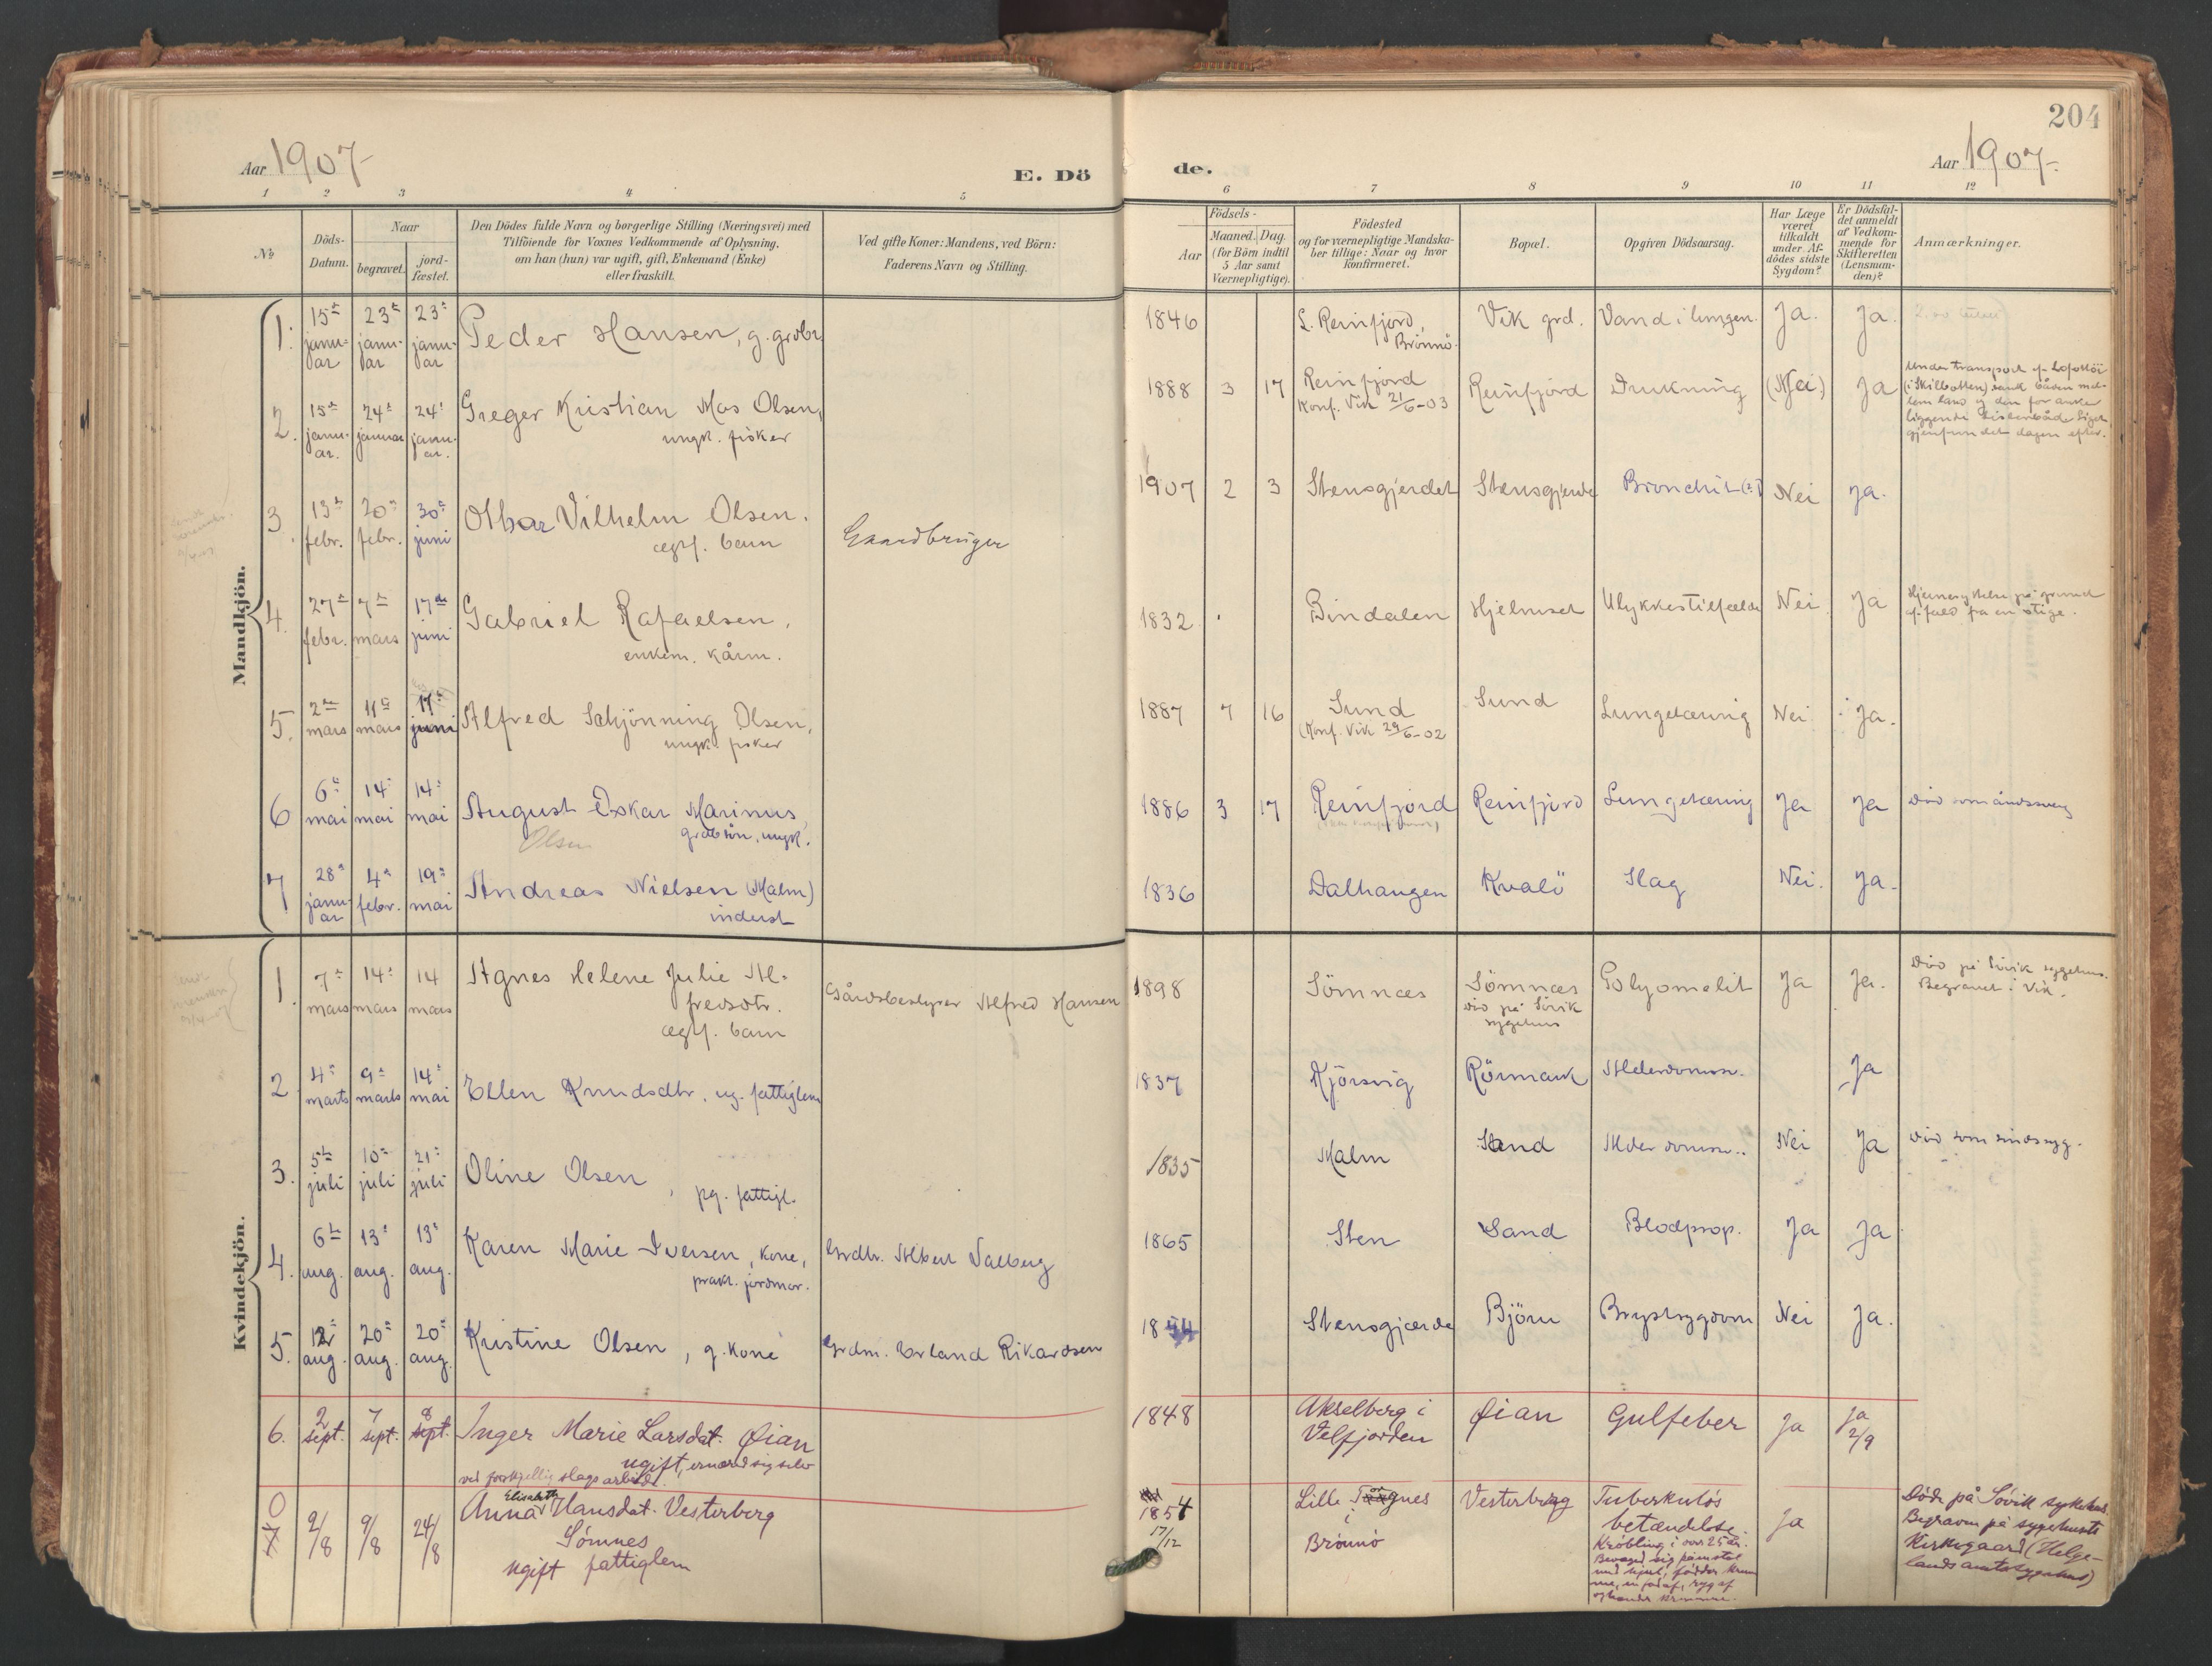 204
Aar 1907-
E. Dö de.
Aar 1907-
1 2 3 4 5 6 7 8 9 10 11 12
No
Döds-
Datum.
Naar
begravet.
jord-
fæstet.
Den Dödes fulde Navn og borgerlige Stilling (Næringsvei) med
Tilföiende for Voxnes Vedkommende af Oplysning,
om han (hun) var ugift, gift, Enkemand (Enke)
eller fraskilt.
Ved gifte Koner: Mandens, ved Börn:
Faderens Navn og Stilling.
Födsels-
Aar
Maaned. Dag.
(for Börn indtil
5 Aar samt
Værnepligtige).
Födested
og for værnepligtige Mandska-
ber tillige: Naar og hvor
konfirmeret.
Bopæl.
Opgiven Dödsaarsag.
Har Læge
været
tilkaldt
under Af-
dödes sidste
Sygdom?
Er Dödsfal-
det anmeldt
af Vedkom-
mende for
Skifteretten
(Lensman-
den)?
Anmærkninger.
Mandkjön.
1. 15de januar 23de januar 23de januar Peder Hansen, g. grdbr. 1846 L. Reinfjord, Brönnö Vik grd. Vand i lungen. Ja. Ja.
2. 15de januar. 24de januar 24de januar. Greger Kristian Mos Olsen, ungk. fisker 1888 3 17 Reinfjord Konf. Vik 21/6-03 Reinfjord Drukning (Nei) Ja
(i Skilbotten) sank båden mel-
lem land og den for anker
gjenfundet dagen efter.
3. 13de febr. 20de febr. 30te juni Othar Vilhelm Olsen. ægf. barn Gaardbruger 1907 2 3 Stensgjerdet Stensgjerde Bronchit (?) Nei Ja.
4. 27de febr. 7de mars 17de juni Gabriel Rafaelsen, enkem. kårm. 1832 Bindalen Hjelmset Ulykkestilfælde Nei. Ja Hjernerystelse på grund
af fald fra en stige.
5. 2den mars 11te mars 17de juni Alfred Schjönning Olsen, ungk. fisker 1887 7 16 Sund (Konf. Vik 29/6-02 Sund Lungetæring Nei Ja.
6 6te mai 14de mai 14de mai August Oskar Marinus, grdb sön, ungk.
Olsen 1886 3 17 Reinfjord Reinfjord Lungetæring Ja Ja Död som åndssvag
7 28de januar 4de febr. 19de mai Andreas Nielsen (Malm) inderst 1836 Dalhaugen Kvalö Slag Nei. Ja.
Kvindekjön.
1. 7de mars 14de mars 14 mars Agnes Helene Julie Al-
fredsdtr. ægf. barn Gårdsbestyrer Alfred Hansen 1898 Sömnæs Sömnæs
död på Sövik
sygehus Polyomelit Ja Ja. Död på Sövik sygehus.
Begravet i Vik.
2. 4de marts 9de marts 14de mai Ellen Knudsdtr, ug. fattiglem 1837 Kjörsvig Rörmark Alderdomssv. Ja
3. 5te juli 10de juli 21de juli Oline Olsen, pg. fattigl. 1835 Malm Sand Alderdomssv. Nei Ja Död som sindssyg.
4. 6te aug. 13de aug. 13de aug. Karen Marie Iversen, kone, prakt. jordmor. Grdbr. Albert Dalberg 1865 Sten Sand Blodprop. Ja Ja
5. 12te aug. 20de aug. 20de aug. Kristine Olsen, g. kone Grdm. Erland Rikardsen 1844 Stensgjærde Björn Brystsygdom Nei Ja.
6. 2 sept. 7 sept. 8 sept. Inger Marie Larsdat. Øian
ugift, ernæred sig selv
ved forskjellig slags arbeide. 1848 Akselberg i
Velfjorden Øian Gulfeber Ja Ja
2/9
0 7 2/8 9/8 24/8 Anna Elisabeth Hansdat. Vesterberg
Sømnes
ugift fattiglem 1854
17/12 Lille Torgnes
i
Brönnö Vesterberg Tuberkuløs
betændelse.
Krøbling i over 25 år. Ja Döde på Søvik sykehus.
Begraven på sygehusets
Kirkegaard (Helge-
lands amtssygehus)